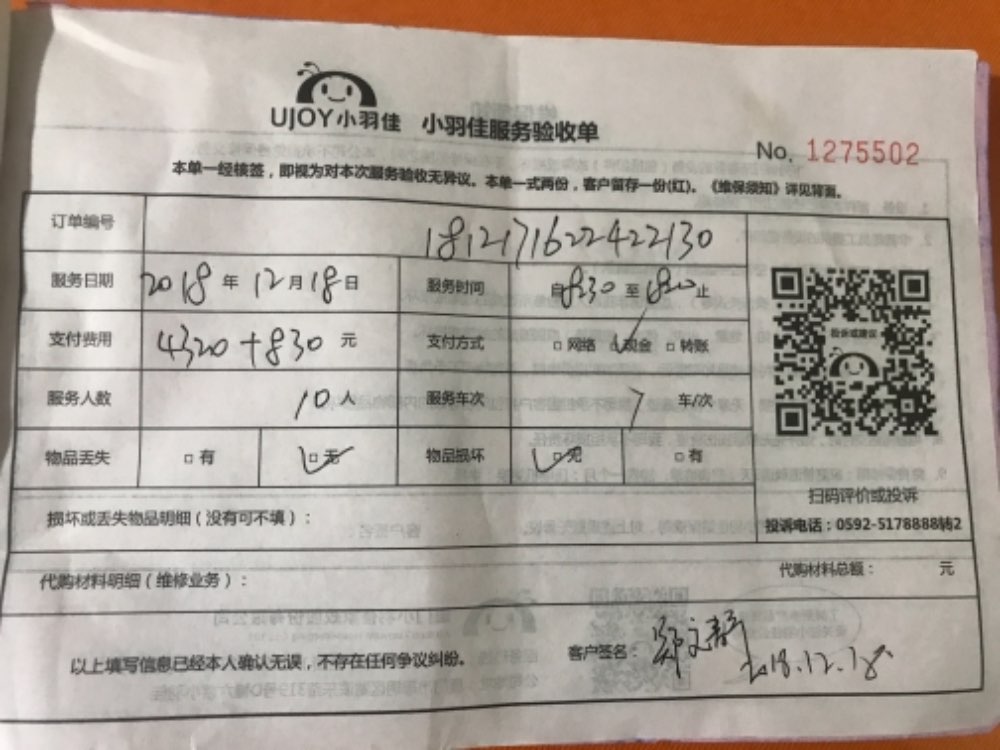 UJOY小羽佳 小羽佳服务验收单
No. 1275502
本单一经核签，即视为对本次服务验收无异议。本单一式两份，客户留存一份(红)。《维保须知》详见背面。
订单编号 1812171622422130
服务日期 2018年12月18日 服务时间 自830至1820止
支付费用 4320+830 元 支付方式 □网络 □现金 □转账
投诉或建议
服务人数 10人 服务车次 7 车/次
物品丢失 □有 □无 物品损坏 □无 □有
扫码评价或投诉
损坏或丢失物品明细（没有可不填）：
投诉电话：0592-5178888转2
代购材料明细（维修业务）：
代购材料总额： 元
以上填写信息已经本人确认无误，不存在任何争议纠纷。
客户签名： 2018.12.18